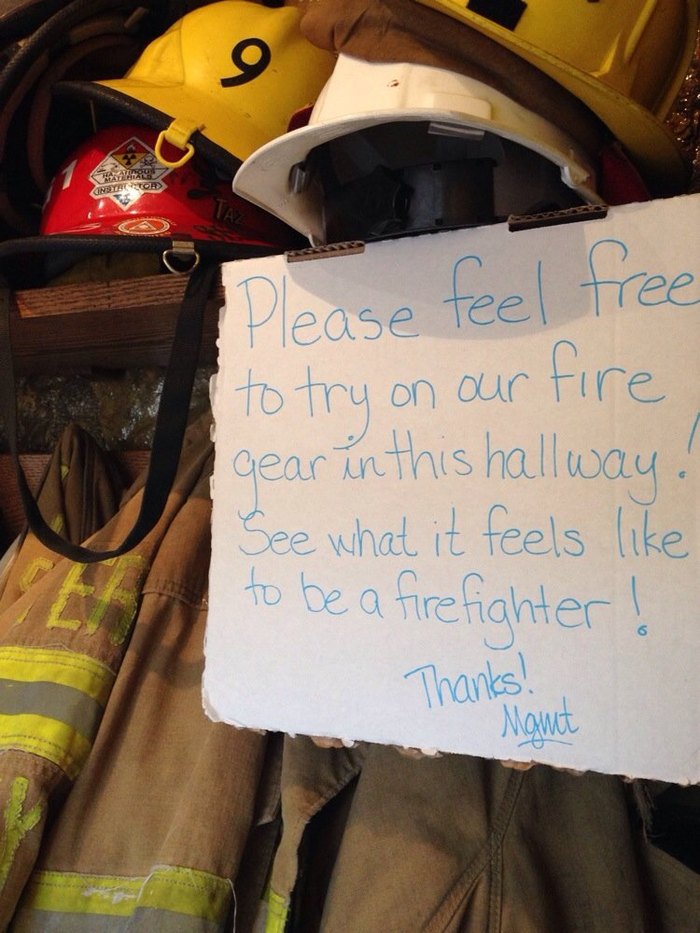 9
1
HAZARDOUS
MATERIALS
INSTRUCTOR
TAZ
Please feel free
to try on our fire
gear in this hallway!
See what it feels like
to be a firefighter!
Thanks!
Mgmt